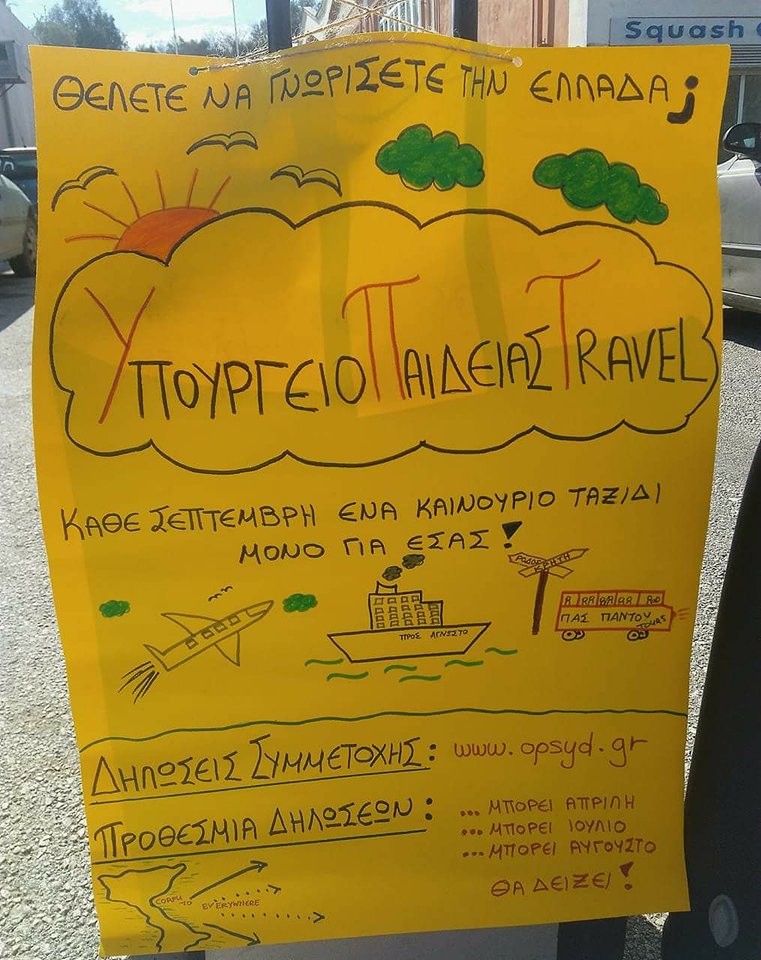 Squash
ΘΕΛΕΤΕ ΝΑ ΓΝΩΡΙΣΕΤΕ ΤΗΝ ΕΛΛΑΔΑ ;
ΥΠΟΥΡΓΕΙΟ ΠΑΙΔΕΙΑΣ TRAVEL
ΚΑΘΕ ΣΕΠΤΕΜΒΡΗ ΕΝΑ ΚΑΙΝΟΥΡΙΟ ΤΑΞΙΔΙ
ΜΟΝΟ ΓΙΑ ΕΣΑΣ !
ΡΟΔΟΣ
ΚΡΗΤΗ
ΠΡΟΣ ΑΓΝΩΣΤΟ
ΠΑΣ ΠΑΝΤΟΥ
TOURS
ΔΗΛΩΣΕΙΣ ΣΥΜΜΕΤΟΧΗΣ : www.opsyd.gr
ΠΡΟΘΕΣΜΙΑ ΔΗΛΩΣΕΩΝ : ... ΜΠΟΡΕΙ ΑΠΡΙΛΗ
... ΜΠΟΡΕΙ ΙΟΥΛΙΟ
... ΜΠΟΡΕΙ ΑΥΓΟΥΣΤΟ
ΘΑ ΔΕΙΞΕΙ !
CORFU
TO EVERYWHERE